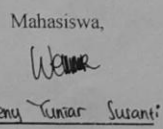 Mahasiswa,
eny Yuniar Susanti